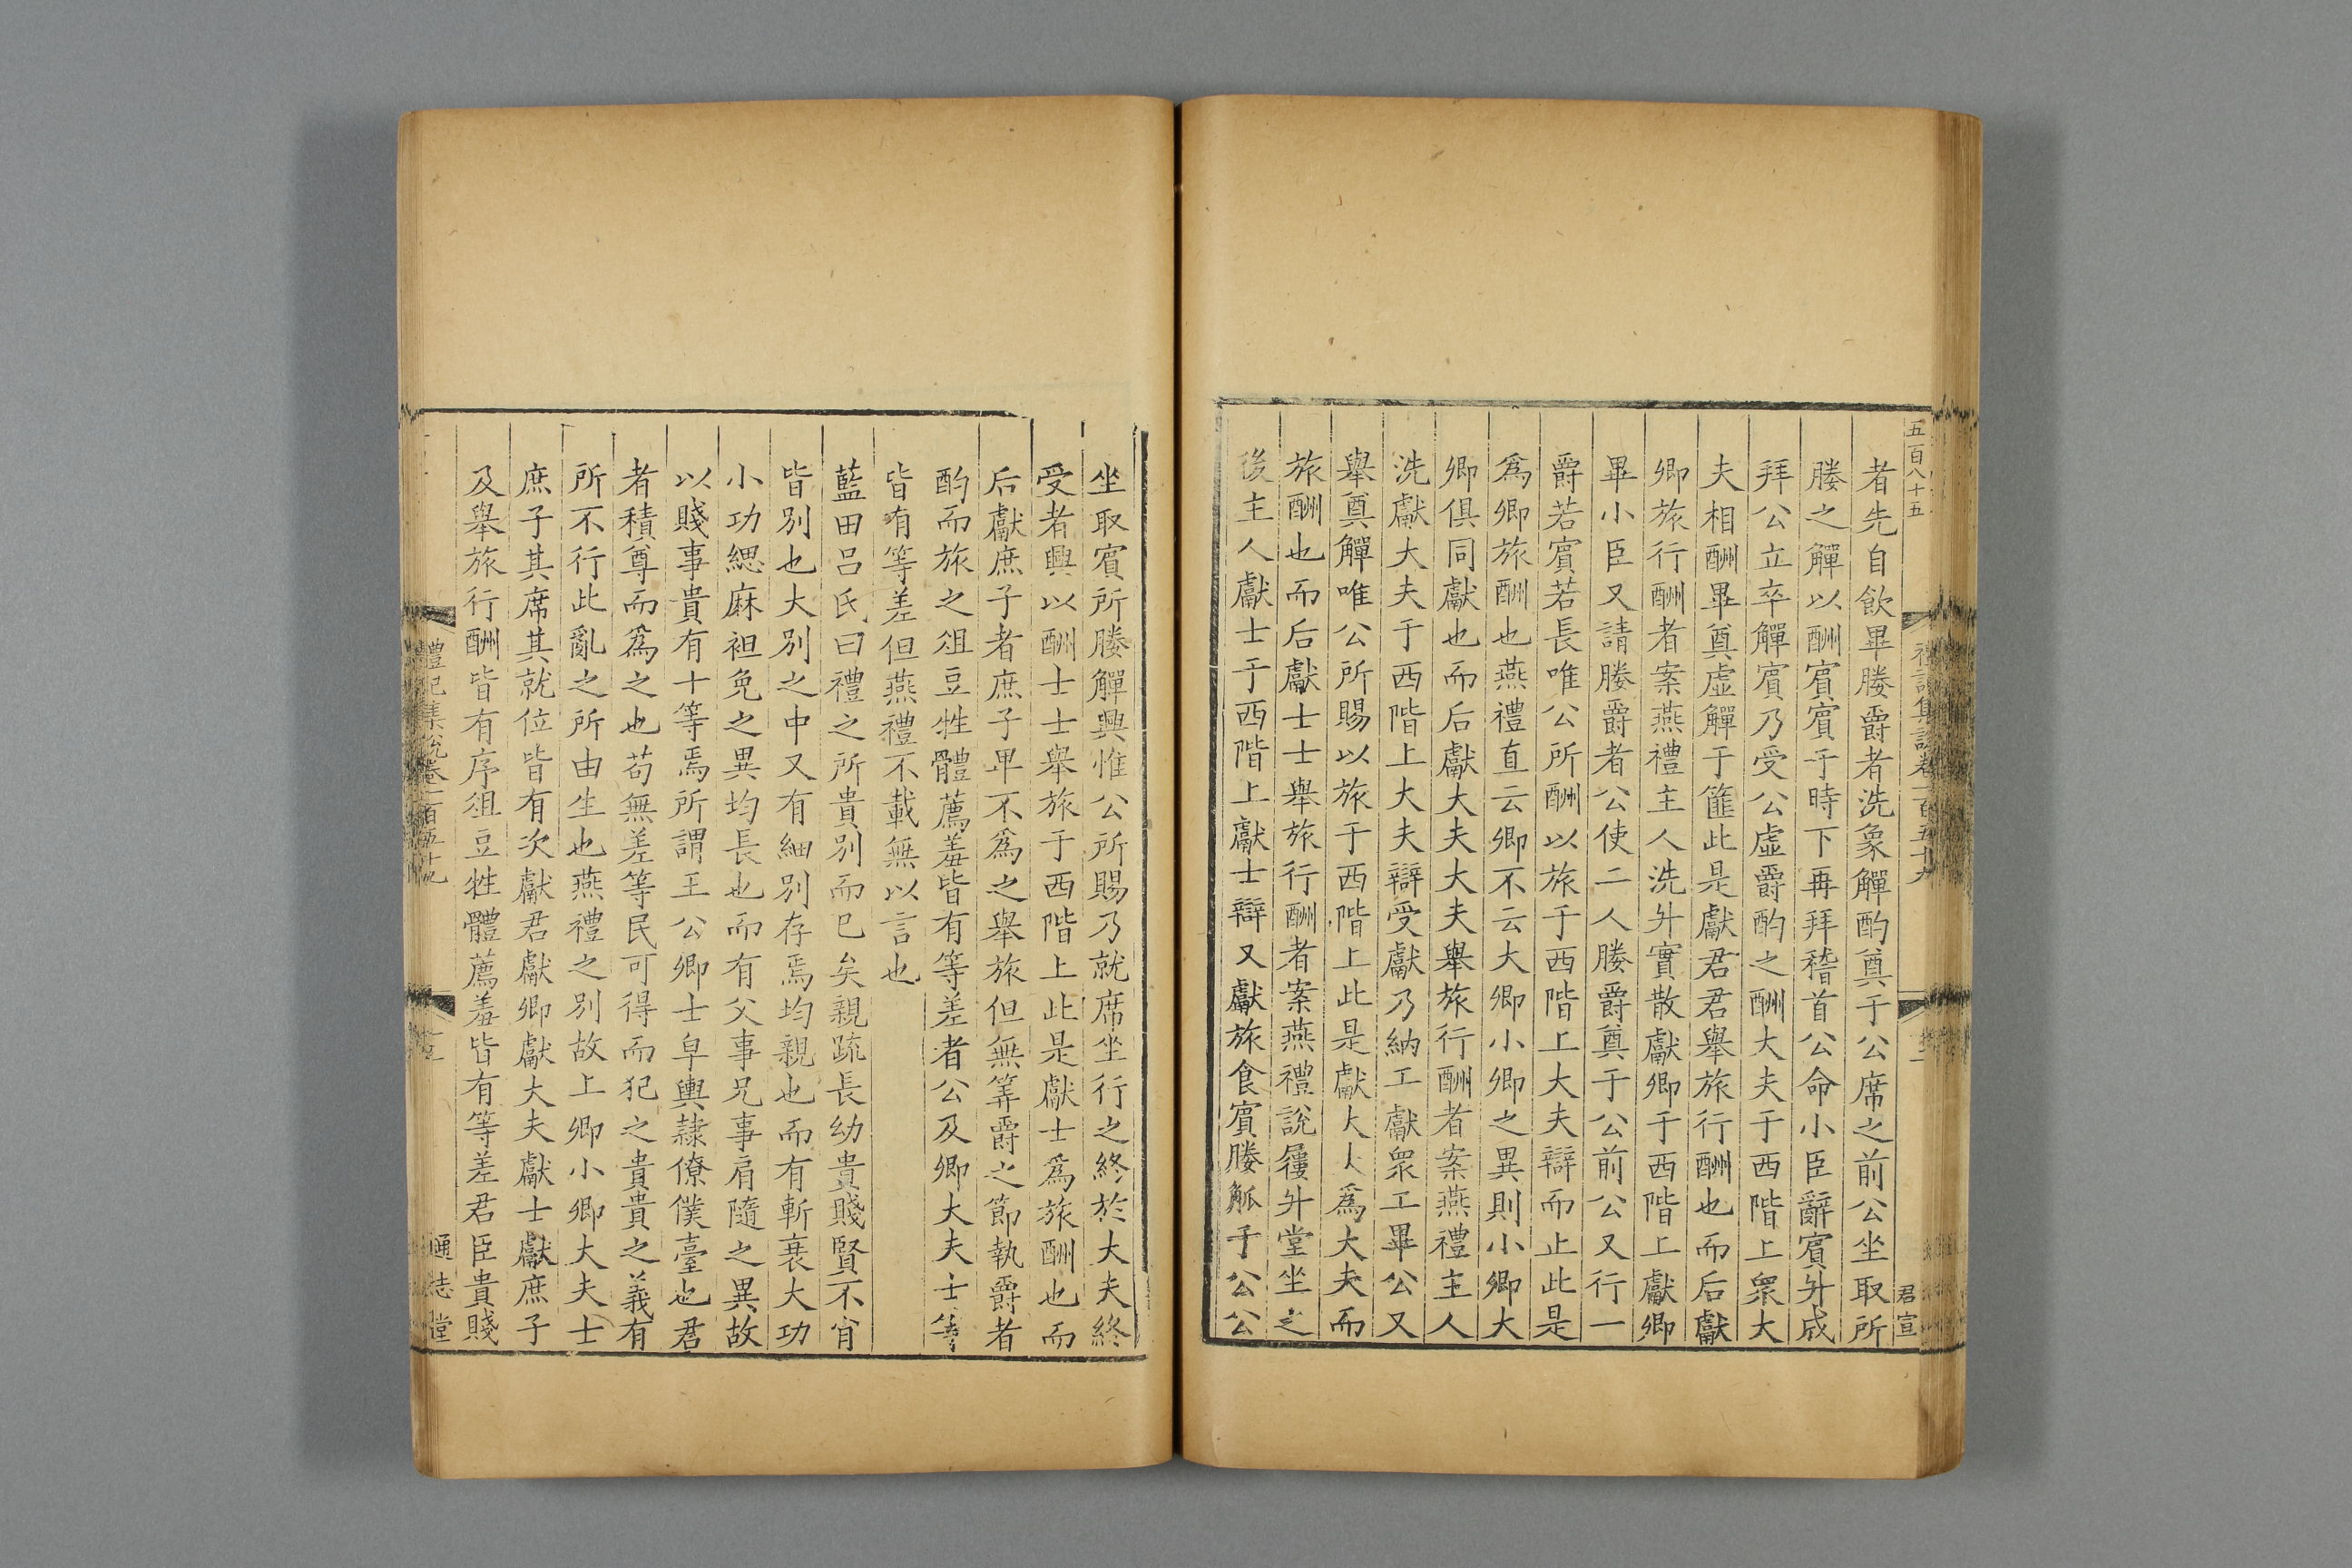 五百八十五
君宣
者先自飲畢媵爵者洗象觶酌奠于公席之前公坐取所
媵之觶以酬賓賓于時下再拜稽首公命小臣辭賓升成
拜公立卒觶賓乃受公虛爵酌之酬大夫于西階上衆大
夫相酬畢奠虛觶于篚此是獻君君舉旅行酬也而后獻
卿旅行酬者案燕禮主人洗升實散獻卿于西階上獻卿
畢小臣又請媵爵者公使二人媵爵奠于公前公又行一
爵若賓若長唯公所酬以旅于西階上大夫辯而止此是
爲卿旅酬也燕禮直云卿不云大卿小卿之異則小卿大
卿俱同獻也而后獻大夫大夫舉旅行酬者案燕禮主人
洗獻大夫于西階上大夫辯受獻乃納工獻衆工畢公又
舉奠觶唯公所賜以旅于西階上此是獻大夫爲大夫而
旅酬也而后獻士士舉旅行酬者案燕禮說屨升堂坐之
後主人獻士于西階上獻士辯又獻旅食賓媵觚于公公
坐取賓所媵觶興惟公所賜乃就席坐行之終於大夫終
受者興以酬士士舉旅于西階上此是獻士爲旅酬也而
后獻庶子者庶子卑不爲之舉旅但無筭爵之節執爵者
酌而旅之俎豆牲體薦羞皆有等差者公及卿大夫士等
皆有等差但燕禮不載無以言也
藍田呂氏曰禮之所貴別而已矣親疏長幼貴賤賢不肖
皆別也大別之中又有細別存焉均親也而有斬衰大功
小功緦麻袒免之異均長也而有父事兄事肩隨之異故
以賤事貴有十等焉所謂王公卿士皁輿隸僚僕臺也君
者積尊而爲之也苟無差等民可得而犯之貴貴之義有
所不行此亂之所由生也燕禮之別故上卿小卿大夫士
庶子其席其就位皆有次獻君獻卿獻大夫獻士獻庶子
及舉旅行酬皆有序俎豆牲體薦羞皆有等差君臣貴賤
禮記集說卷一百五十九
通志堂